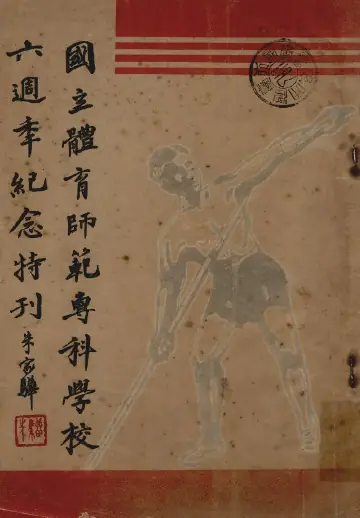 國立體育師範專科學校
六週季紀念特刊
朱家驊